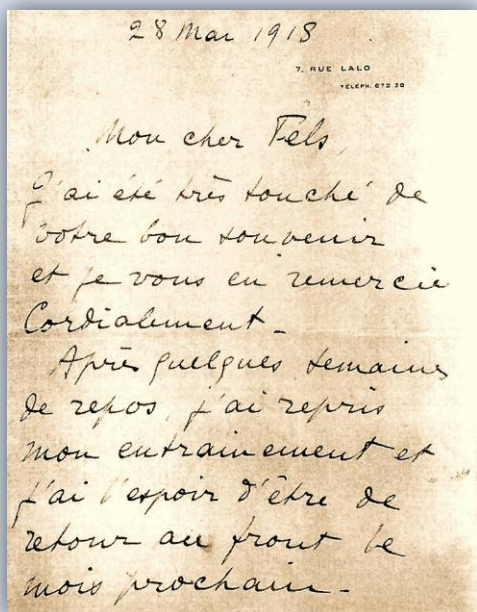 28 Mai 1918
7, RUE LALO
TÉLÉPH. 672.30
Mon cher Fels,
J'ai été très touché de
votre bon souvenir
et je vous en remercie
Cordialement -
Après quelques semaines
de repos, j'ai repris
mon entrainement et
j'ai l'espoir d'être de
retour au front le
mois prochain -